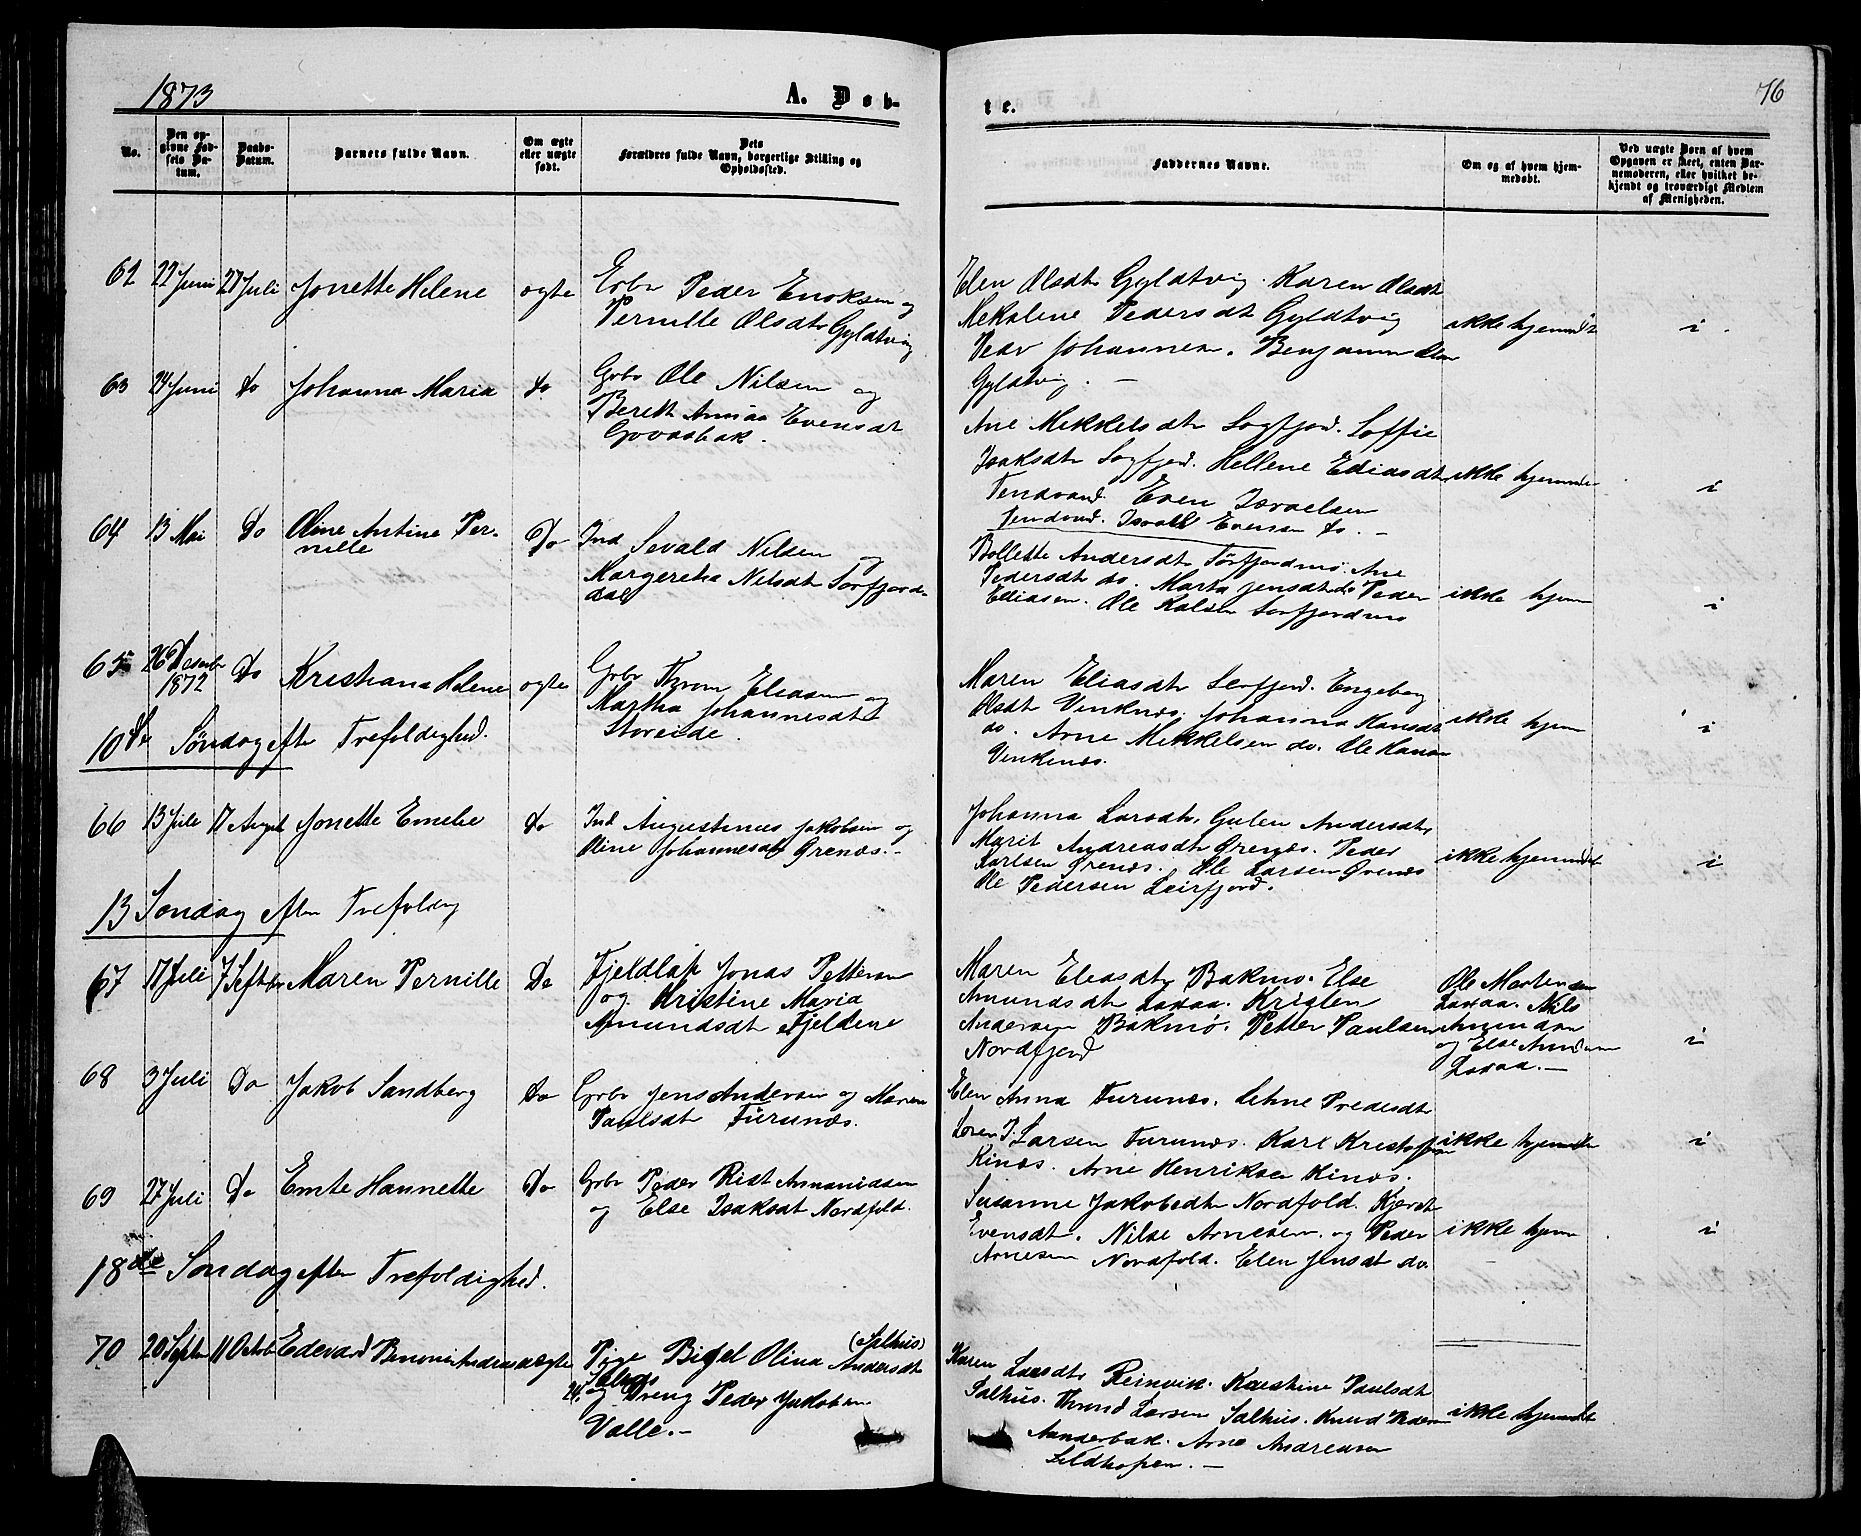 1873
A. Døb-
te.
76
No.
Den op-
givne Fød-
sels Da-
tum.
Daabs-
Datum.
Barnets fulde Navn.
Om ægte
eller uægte
født.
Dets
Forældres fulde Navn, borgerlige Stilling og
Opholdssted.
Faddernes Navne.
Om og af hvem hjem-
medøbt.
Ved uægte Børn af hvem
Opgaven er skeet, enten Bar-
nemoderen, eller hvilket be-
kjendt og troværdigt Medlem
af Menigheden.
62 22 Juni 27 Juli Jonette Helene ogte
Grbr Peder Enoksen og
Pernille Olsdtr Gyldtvig
Elen Olsdtr Gyldtvig. Karen Olsdt
Mekaline Pedersdt Gyldtvig
Peder Johannesen. Benjamin Olsen
Gyldtvig. —
ikke hjemmdt
i
63 24 Juni do Johanna Maria do
Grbr Ole Nilsen og
Berith Annaa Evensdt
Ane Mikkelsdtr Sagfjord. Soffie
Isaksdtr Sagfjord. Hellene Ediasdt
Tendvand. Even Israelsen
Tendvand. Israel Evensen do. —
ikke hjemmde
i
64 13 Mai Do Oline Antine Per-
nille Do
Ind Sevald Nilsen og
Margeretha Nilsdtr Sørfjord-
dal
Bollette Andersdtr Sørfjordmo. Ane
Pedersdt do. Marta Jensdt do Peder
Ediasen. Ole Kalsen Sørfjordmo
ikke hjem
i
65 26 Desembr
1872 Do Kristiana Helene ogte
Grbr Thron Eliasen og
Martha Johannesdt
Storeide.
Maren Eliasdtr Leerfjord. Engeborg
Olsdt Vinknes. Johanna Hansdt
do. Arne Mikkelsen do. Ole Hansen
Vinkenæs.
ikke hjem
i
10de Søndag efter Trefoldighed.
66 13 Juli 17 August Jonette Emelie do
Ind Augustinus Jakobsen og
Oline Johannesdt Ørenæs. —
Johanna Larsdtr Gulen Andersdtr
Marit Andreasdtr Ørenæs. Peder
Karlsen Ørenæs. Ole Larsen Ørenæs
Ole Pedersen Leirfjord.
ikke hjemmdt
i
13 Søndag efter Trefoldig
67 17 Juli 7 Septbr Maren Pernille Do
Fjeldlap Jonas Pettersen
og Kristine Maria
Amundsdt Fjeldene
Maren Eliasdtr Bakmo. Else
Amundsdt Laxaa. Kristen
Andersen Bakmo. Petter Paulsen
Nordfjord
Ole Martensen
Laxaa. Nils
Amundsen
og Else Amdsen
Laxaa. —
i
68 3 Juli Do Jakob Sandberg Do
Grbr Jens Andersen og Maren
Paulsdt Furunæs.
Elen Anna Furunæs. Lehne Predesdtr
Søren J. Larsen Furunæs. Karl Kristoffersen
Kinæs. Arne Henriksen Kinæs.
ikke hjemmde
i
69 27 Juli Do Emte Hannette Do
Grbr Peder Rist Ammonidsen
og Else Isaksdt Nordfold.
Susanne Jakobsdt Nordfold. Kjerst
Evensdt. Nilse Arnesen. og Peder
Arnesen Nordfold. Elen Jensdt do.
ikke hjem
i
18de Søndag efter Trefoldighed.
70 20 Septbr 11 Octobr Edevard Benoni Andreas uægte
Pige Birgel Olina Andersdt
(Salhus)
og Dreng Peder Jakobsen
Valle. —
Karen Larsdtr Reinvik. Karstine Paulsdt
Salhus. Thrond Larsen Salhus. Knud Pedersen
Aanderbak. Arne Andreasen
Sildhopen. —
ikke hjemmdt